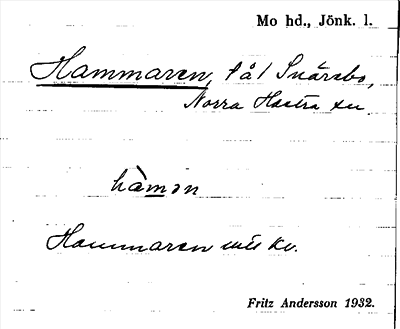 Mo hd., Jönk. l.
Hammaren, l å l Snärsbo,
Norra Hestra sn.
hàmən
Hammaren utis kv.
Fritz Andersson 1932.